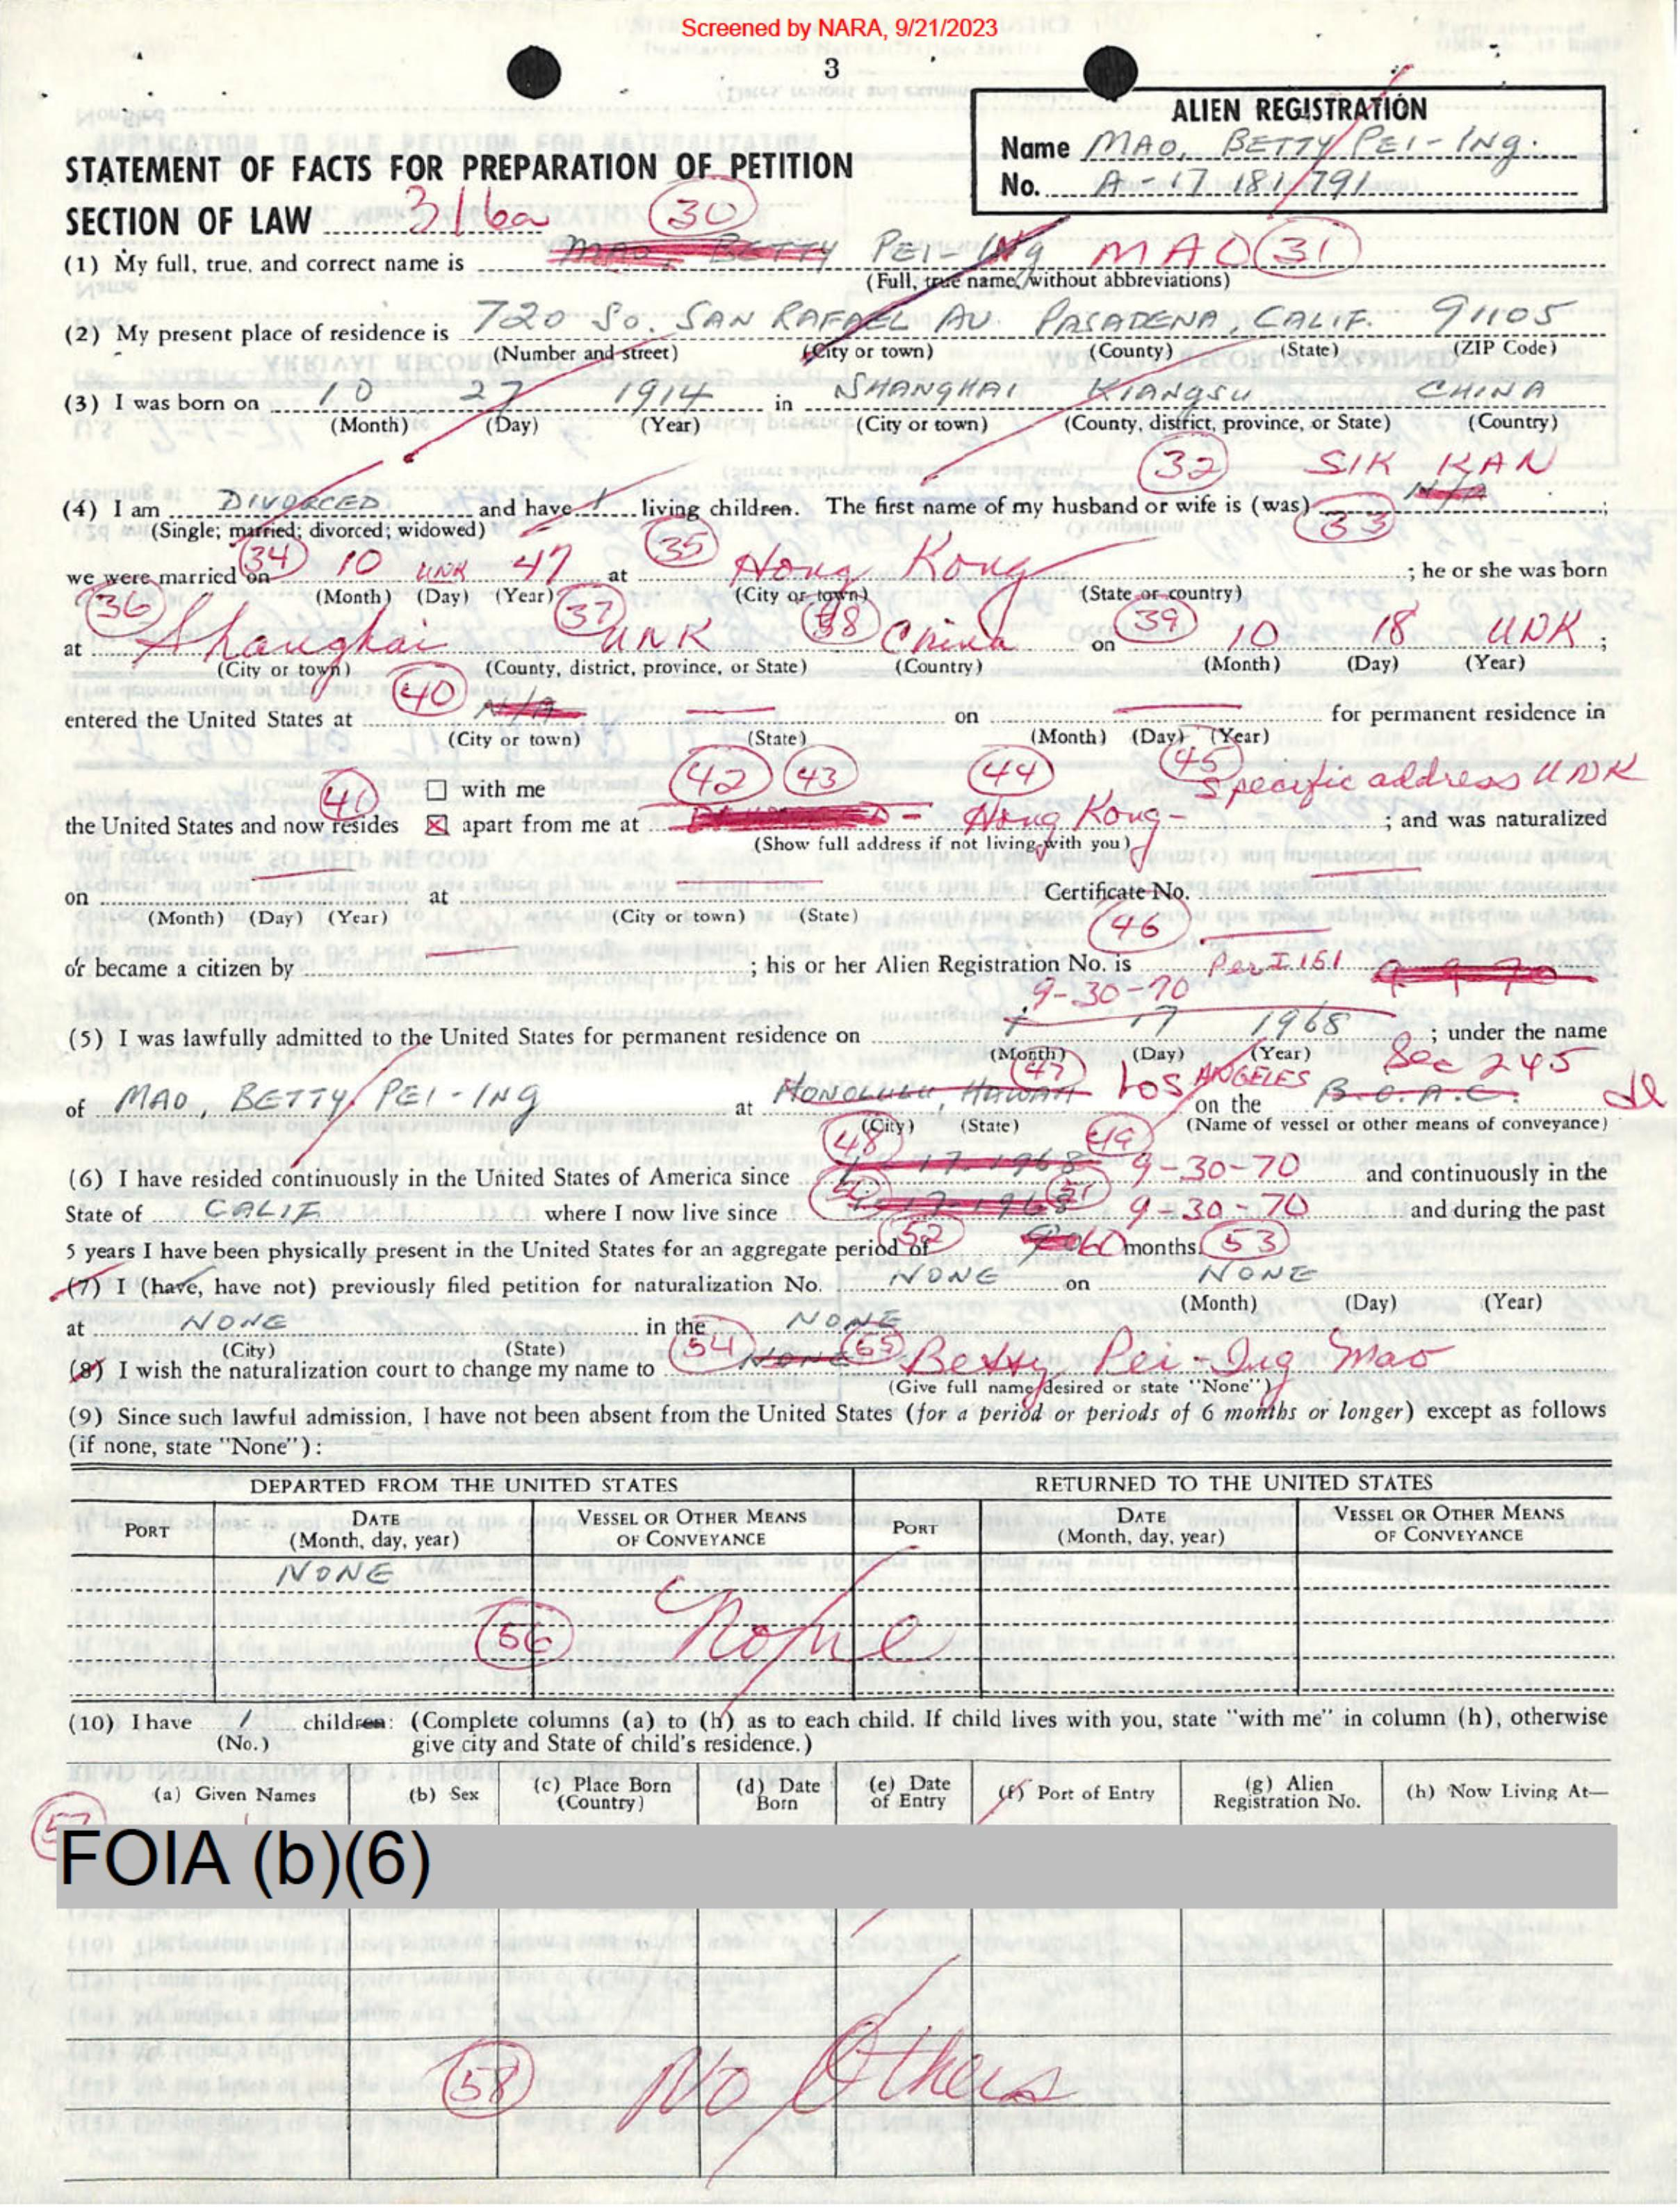 Screened by NARA, 9/21/2023
3
ALIEN REGISTRATION
Name MAO, BETTY PEI-ING.
No. A-17 181 791
STATEMENT OF FACTS FOR PREPARATION OF PETITION
SECTION OF LAW 316a (30)
(1) My full, true, and correct name is MAO, BETTY PEI-ING MAO (31)
(Full, true name, without abbreviations)
(2) My present place of residence is 720 So. SAN RAFAEL AU. PASADENA, CALIF. 91105
(Number and street) (City or town) (County) (State) (ZIP Code)
(3) I was born on 10 27 1914 in SHANGHAI KIANGSU CHINA
(Month) (Day) (Year) (City or town) (County, district, province, or State) (Country)
(32) SIK KAN
(4) I am DIVORCED and have 1 living children. The first name of my husband or wife is (was) N/A ;
(Single; married; divorced; widowed) (33)
we were married on (34) 10 UNK 47 at (35) Hong Kong ; he or she was born
(Month) (Day) (Year) (City or town) (State or country)
at (36) Shanghai (37) UNK (38) China on (39) 10 18 UNK ;
(City or town) (County, district, province, or State) (Country) (Month) (Day) (Year)
entered the United States at (40) N/A on for permanent residence in
(City or town) (State) (Month) (Day) (Year)
(41) with me (42) (43) (44) (45) Specific address UNK
the United States and now resides apart from me at - Hong Kong - ; and was naturalized
(Show full address if not living with you)
on at Certificate No.
(Month) (Day) (Year) (City or town) (State)
(46)
or became a citizen by ; his or her Alien Registration No. is Per I 151
9-30-70
(5) I was lawfully admitted to the United States for permanent residence on 17 1968 ; under the name
(Month) (Day) (Year) Sec 245
of MAO, BETTY PEI-ING at HONOLULU, HAWAII (47) LOS ANGELES on the B.O.A.C.
(City) (State) (Name of vessel or other means of conveyance)
(48) (49)
(6) I have resided continuously in the United States of America since 17-1968 9-30-70 and continuously in the
State of CALIF. where I now live since (50) 17-1968 (51) 9-30-70 and during the past
5 years I have been physically present in the United States for an aggregate period of (52) 60 months. (53)
(7) I (have, have not) previously filed petition for naturalization No. NONE on NONE
(Month) (Day) (Year)
at NONE in the NONE
(City) (State)
(8) I wish the naturalization court to change my name to (54) NONE (55) Betty Pei-Ing Mao
(Give full name desired or state "None")
(9) Since such lawful admission, I have not been absent from the United States (for a period or periods of 6 months or longer) except as follows
(if none, state "None"):
DEPARTED FROM THE UNITED STATES RETURNED TO THE UNITED STATES
PORT DATE (Month, day, year) VESSEL OR OTHER MEANS OF CONVEYANCE PORT DATE (Month, day, year) VESSEL OR OTHER MEANS OF CONVEYANCE
NONE
(56) None
(10) I have 1 children: (Complete columns (a) to (h) as to each child. If child lives with you, state "with me" in column (h), otherwise
(No.) give city and State of child's residence.)
(a) Given Names (b) Sex (c) Place Born (Country) (d) Date Born (e) Date of Entry (f) Port of Entry (g) Alien Registration No. (h) Now Living At—
(57)
FOIA (b)(6)
(58) No Others